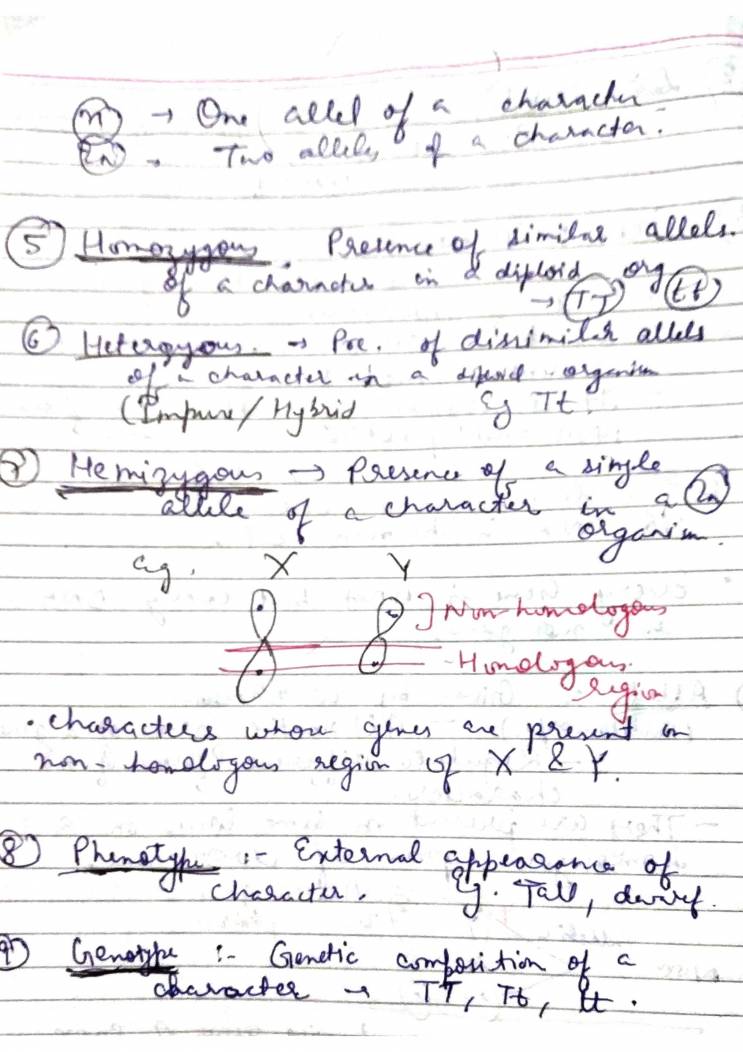 (n) → One allel of a character
(2n) → Two alleles of a character.
(5) Homozygous. Presence of similar allels.
of a character in a diploid org
→ (TT) (tt)
(6) Hetergyous. → Pre. of dissimilar allels
of a character in a diploid organism
(Impure / Hybrid Eg Tt
(7) Hemizygous → Presence of a single
allele of a character in a (2n)
organism.
eg. X Y
] Non-homologous
- Homologous
region.
• characters whose genes are present in
non-homologous region of X & Y.
(8) Phenotype :- External appearance of
character. Eg. Tall, dwarf.
(9) Genotype :- Genetic composition of a
character → TT, Tt, tt.